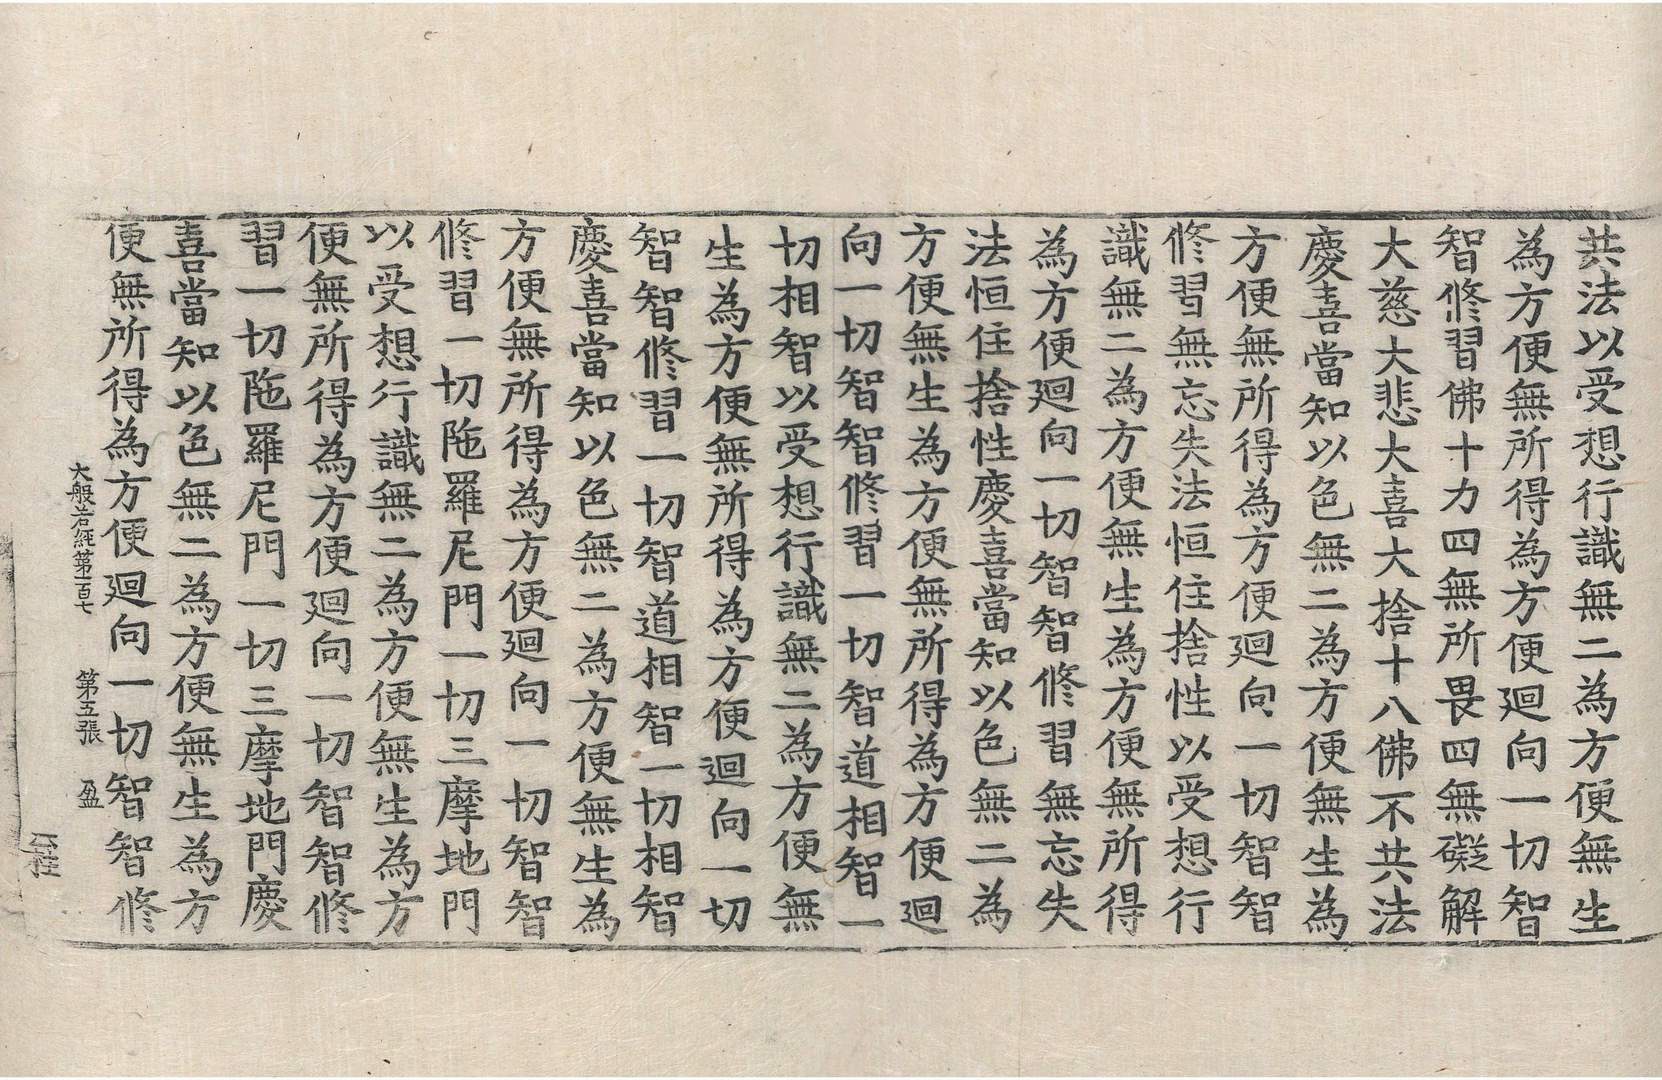 共法以受想行識無二為方便無生
為方便無所得為方便廻向一切智
智修習佛十力四無所畏四無礙解
大慈大悲大喜大捨十八佛不共法
慶喜當知以色無二為方便無生為
方便無所得為方便廻向一切智智
修習無忘失法恒住捨性以受想行
識無二為方便無生為方便無所得
為方便廻向一切智智修習無忘失
法恒住捨性慶喜當知以色無二為
方便無生為方便無所得為方便廻
向一切智智修習一切智道相智一
切相智以受想行識無二為方便無
生為方便無所得為方便廻向一切
智智修習一切智道相智一切相智
慶喜當知以色無二為方便無生為
方便無所得為方便廻向一切智智
修習一切陁羅尼門一切三摩地門
以受想行識無二為方便無生為方
便無所得為方便廻向一切智智修
習一切陁羅尼門一切三摩地門慶
喜當知以色無二為方便無生為方
便無所得為方便廻向一切智智修
大般若經第一百七 第五張 盈